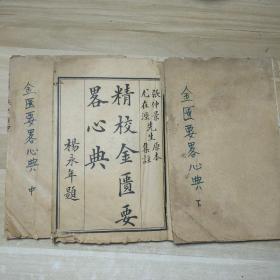 金匱要畧心典 中
張仲景先生原本
尤在涇先生集註
精校金匱要
畧心典
楊永年題
金匱要畧心典 下